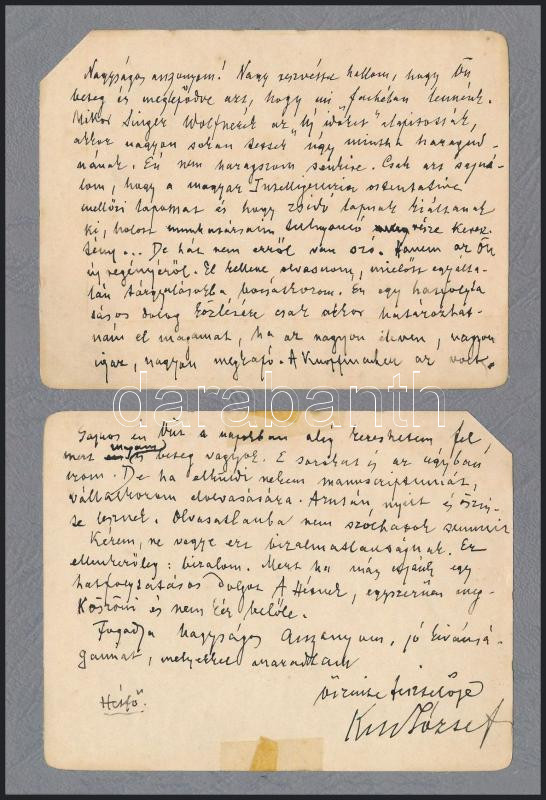 Nagyságos asszonyom! Nagy részvéttel hallom, hogy Ön
beteg és meglepődve azt, hogy mi „fachéban lennénk.
Mikor Singer Wolfnerék az "Új időket" alapították,
akkor nagyon sokan tettek úgy mintha haragud-
nának. Én nem haragszom senkire. Csak azt sajná-
lom, hogy a magyar Intelligencia ostentative
mellőzi lapomat és hogy zsidó lapnak kiáltanak
ki, holott munkatársaim túlnyomó része keresz-
tény... De hát nem erről van szó. Hanem az Ön
új regényéről. El kellene olvasnom, mielőtt egyálta-
lán tárgyalásokba bocsátkozom. Én egy hatfolyta
tásos dolog közlésére csak akkor határozhat-
nám el magamat, ha az nagyon eleven, nagyon
igaz, nagyon megkapó. A az volt.
darabanth
Sajnos én Önt a napokban alig kereshetem fel,
mert magam is beteg vagyok. E sorokat is az ágyban
írom. De ha elküldi nekem manuscriptumát,
vállalkozom elolvasására. Azután, nyílt és őszin-
te leszek. Olvasatlanba nem szólhatok semmit
Kérem, ne vegye ezt bizalmatlanságnak. Ez
ellenkezőleg: bizalom. Mert ha más egy
hatfolytatásos dolgot A Hétnek, egyszerűen meg-
köszöni és nem kér belőle.
Fogadja Nagyságos Asszonyom, jó kivánsá-
gaimat, melyekkel maradtam
őszinte tisztelője
Hétfő.
Kiss József